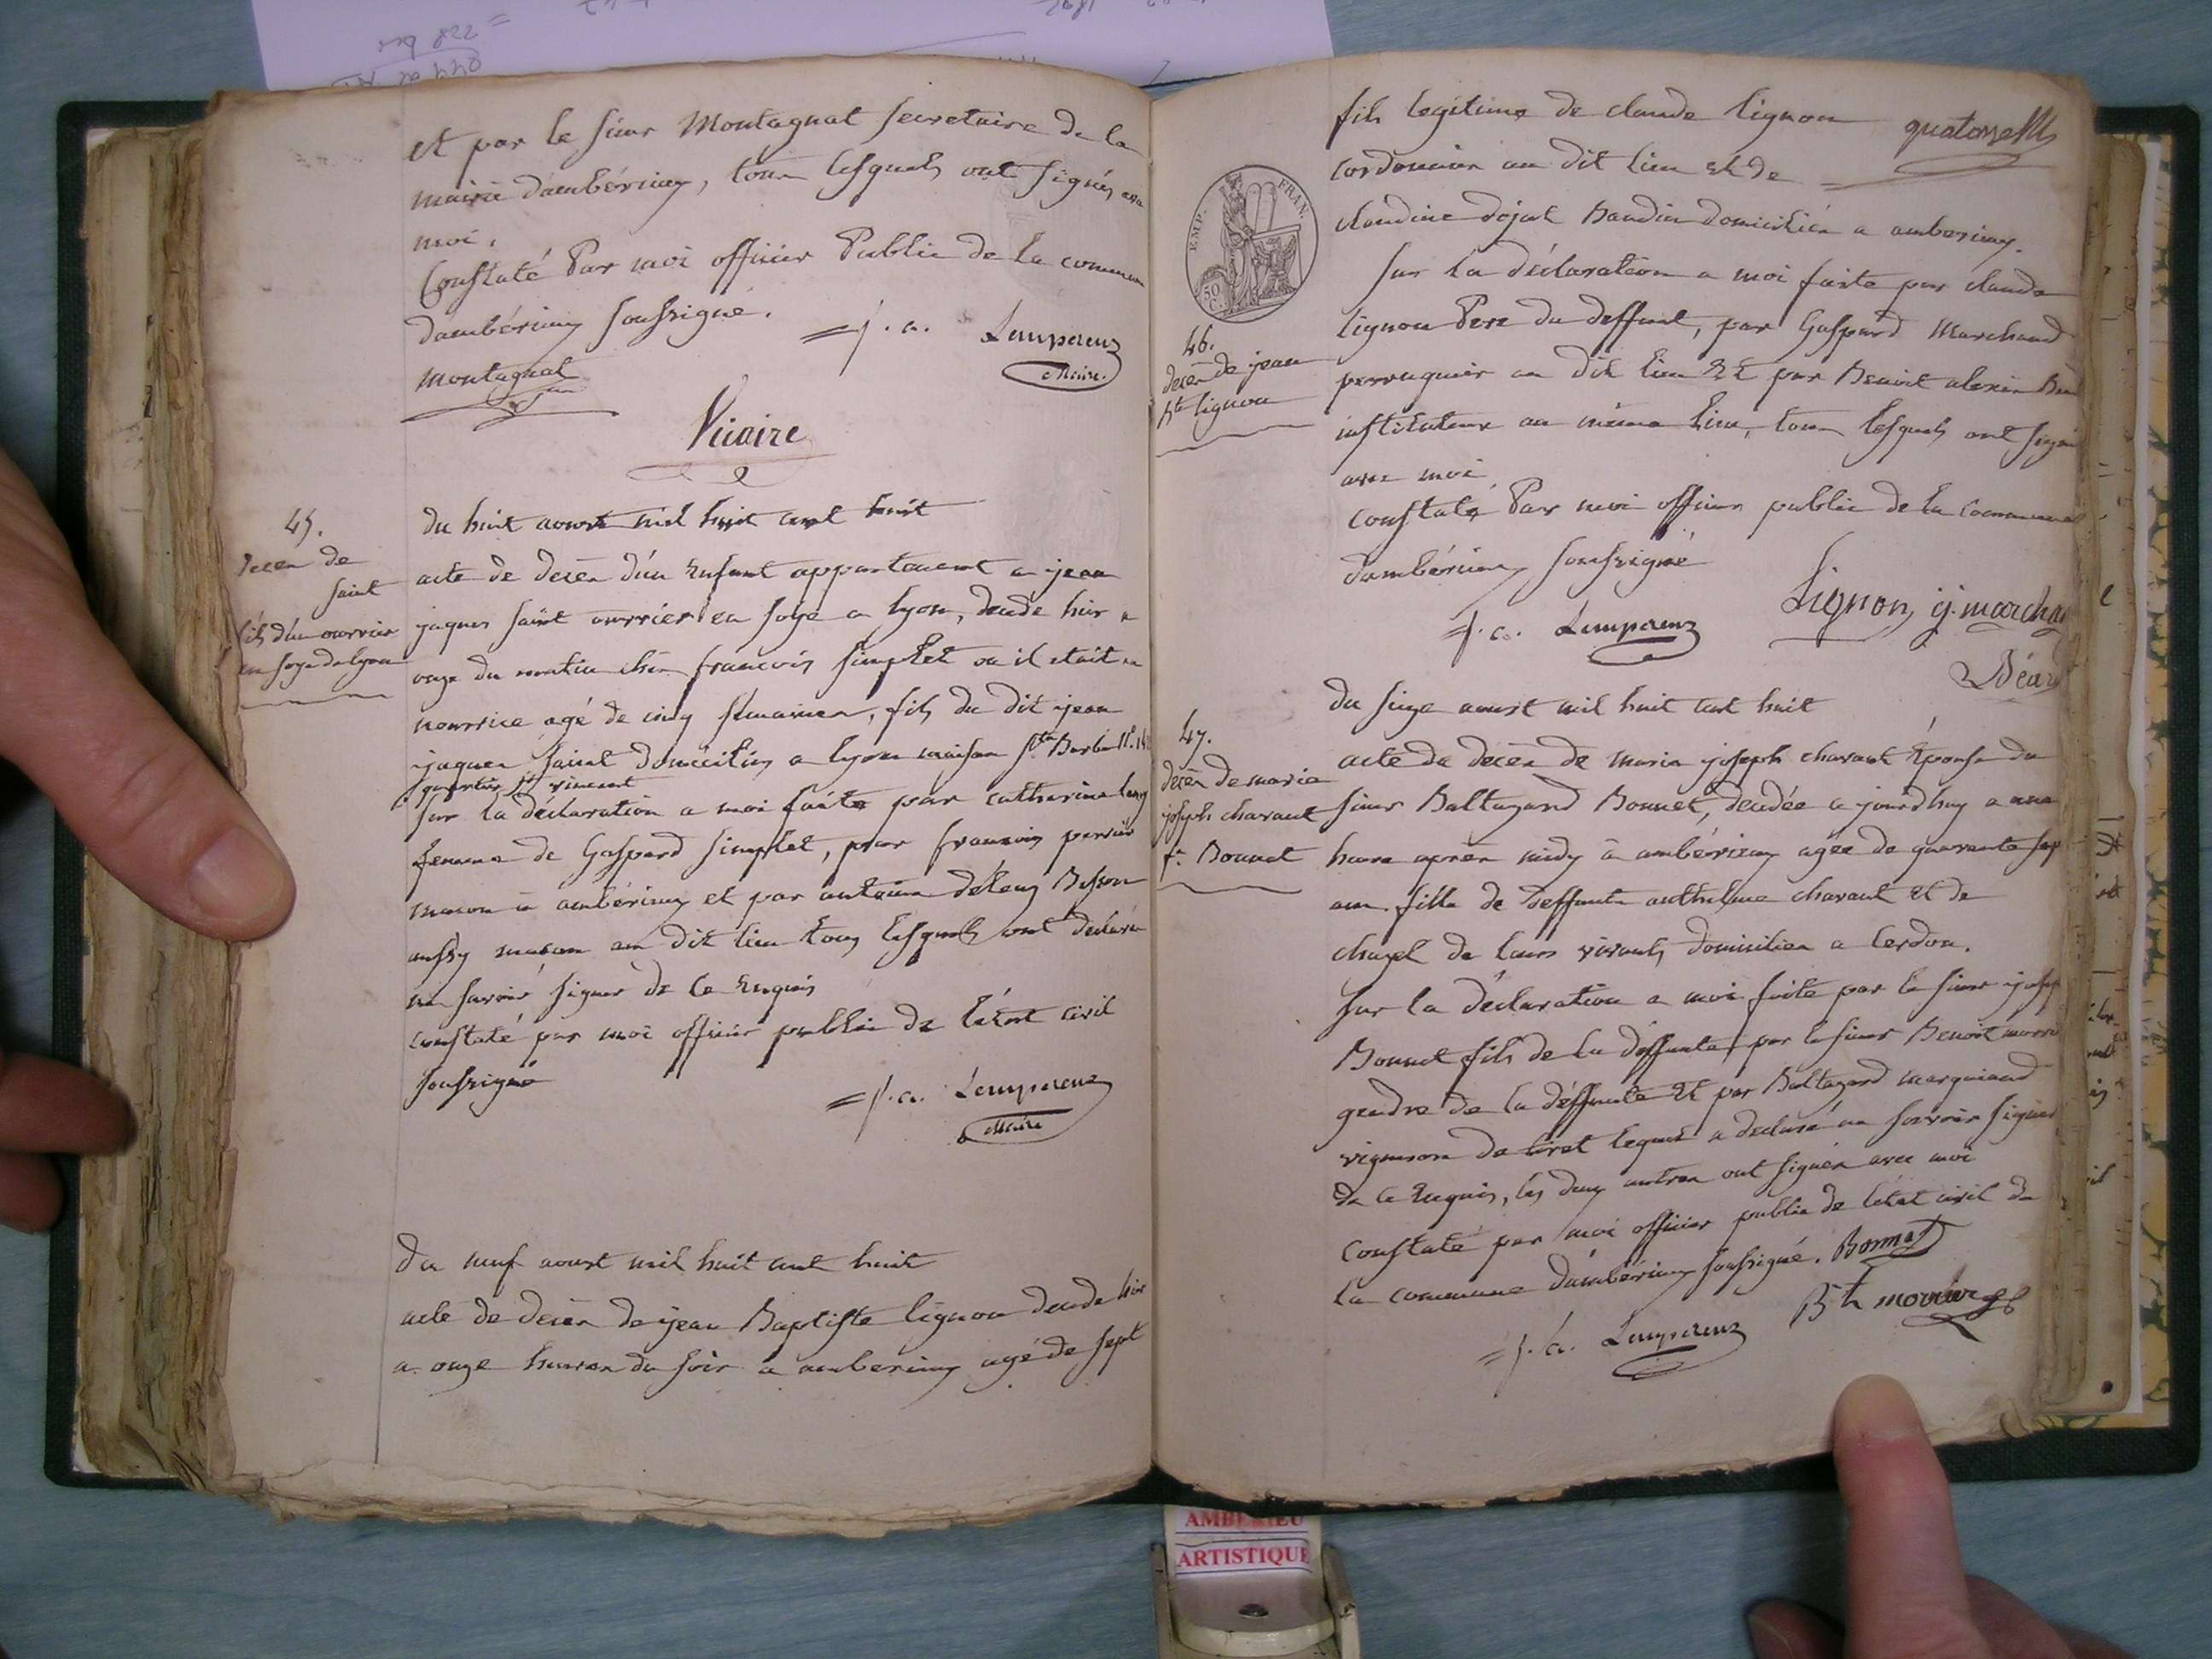 et par le sieur Montagnat secretaire de la
mairie d'ambérieux, tous lesquels ont signés avec
moi.
Constaté Par moi officier Public de la commune
d'ambérieux soussigné.
j. a. Lempereur
Maire.
Montagnat
Vicaire
45.
decen de
saint
fils d'un ouvrier
en soye de lyon
du huit aoust mil huit cent huit
acte de decen d'un Enfant appartenent a jean
jaques saint ouvrier en soye a lyon, decede hier a
onze du matin chez francois simplet ou il etait en
nourrice agé de cinq semaines, fils du dit jean
jaques saint domicilies a lyon maison Ste Barbe
quartier st vincent
sur la déclaration a moi faite par catherine
femme de Gaspard simplet, par francois perrier
macon a ambérieux et par antoine Besson
aussy macon au dit lieu tous lesquels ont declare
ne savoir signer de ce Enquis
constaté par moi officier public de létat civil
soussigné
j. a. Lempereur
Maire
du neuf aoust mil huit cent huit
acte de decen de jean Baptiste lignon decede hier
a onze heures du soir a amberieux agé de sept
quatorze
fils legitime de claude lignon
cordonnier au dit lieu et de
claudine dojat Baudin domiciliés a amberieux.
EMP. FRAN.
50 C.
sur la déclaration a moi faite par claude
lignon Pere du deffunt, par Gaspard Marchand
46.
decen de jean
Bte lignon
perruquier au dit lieu Et par Benoit alexis
instituteur au même lieu, tous lesquels ont signé
avec moi
constaté Par moi officier public de la commune
d'ambérieux soussigné
Lignon, g. marchan
j. a. Lempereur
Béar
47.
decen de marie
joseph charaut
fe. Bonnet
du seize aoust mil huit cent huit
acte de decen de marie joseph charaut Epouse du
sieur Baltazard Bonnet, decedée a jourdhuy a une
heure apres midy a ambérieux agée de quarante sep
ans. fille de deffunts anthelme charaut et de
chazel de leurs vivants domicilies a cerdon.
sur la déclaration a moi faite par le sieur josep
Bonnet fils de la deffunte, par le sieur Benoit
gendre de la deffunte Et par Baltazard marquiand
vigneron de tiret lequel a declaré ne savoir signer
de ce Enquis, les deux autres ont signés avec moi
Constaté par moi officier public de létat civil de
la commune d'ambérieux soussigné. Bonnet
j. a. Lempereur
AMBERIEU
ARTISTIQUE